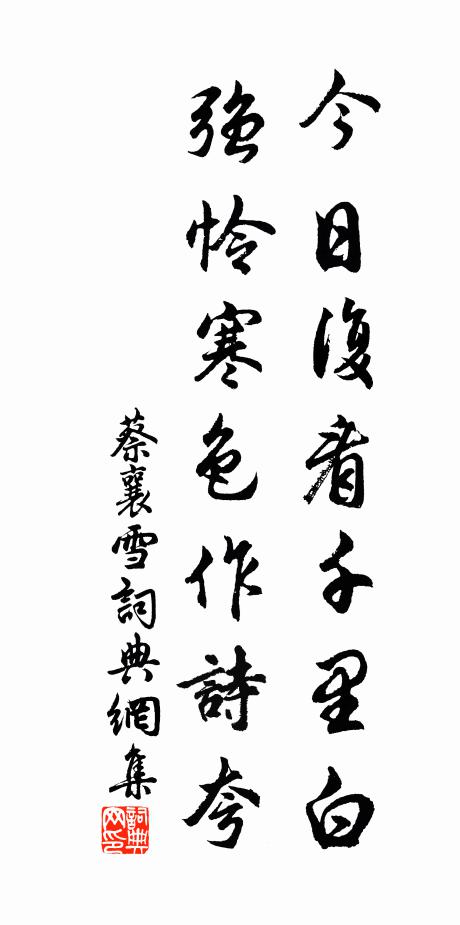 今日復看千里白
強怜寒色作詩夸
蔡襄雪詞典網集
詞典网印